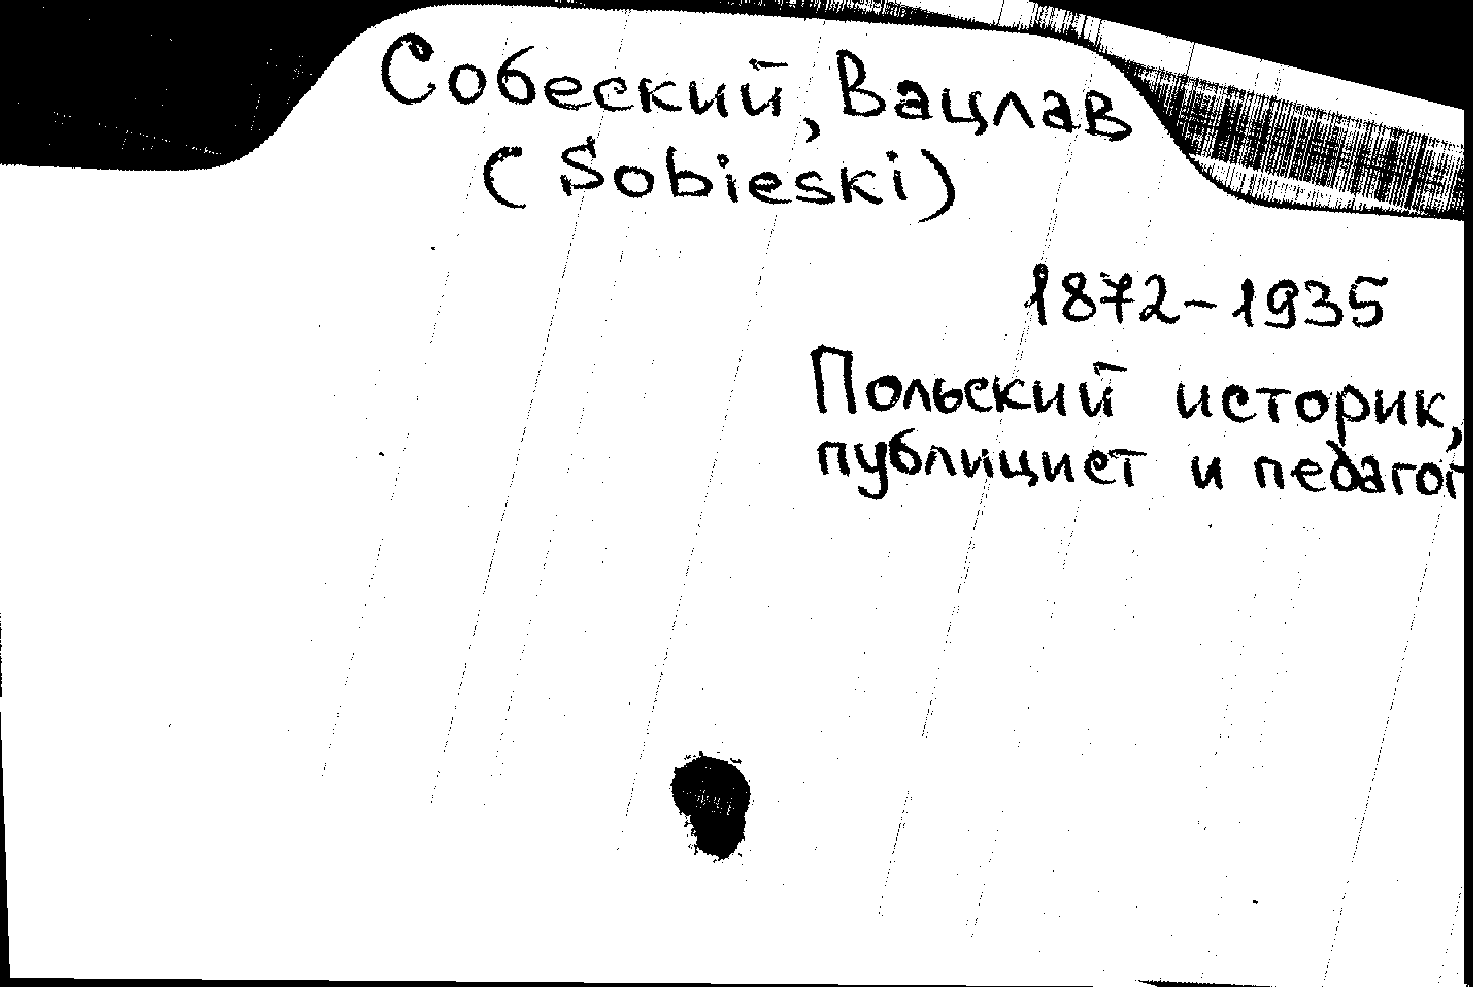 Собеский, Вацлав
(Sobieski)
1872-1935
Польский историк,
публицист и педагог